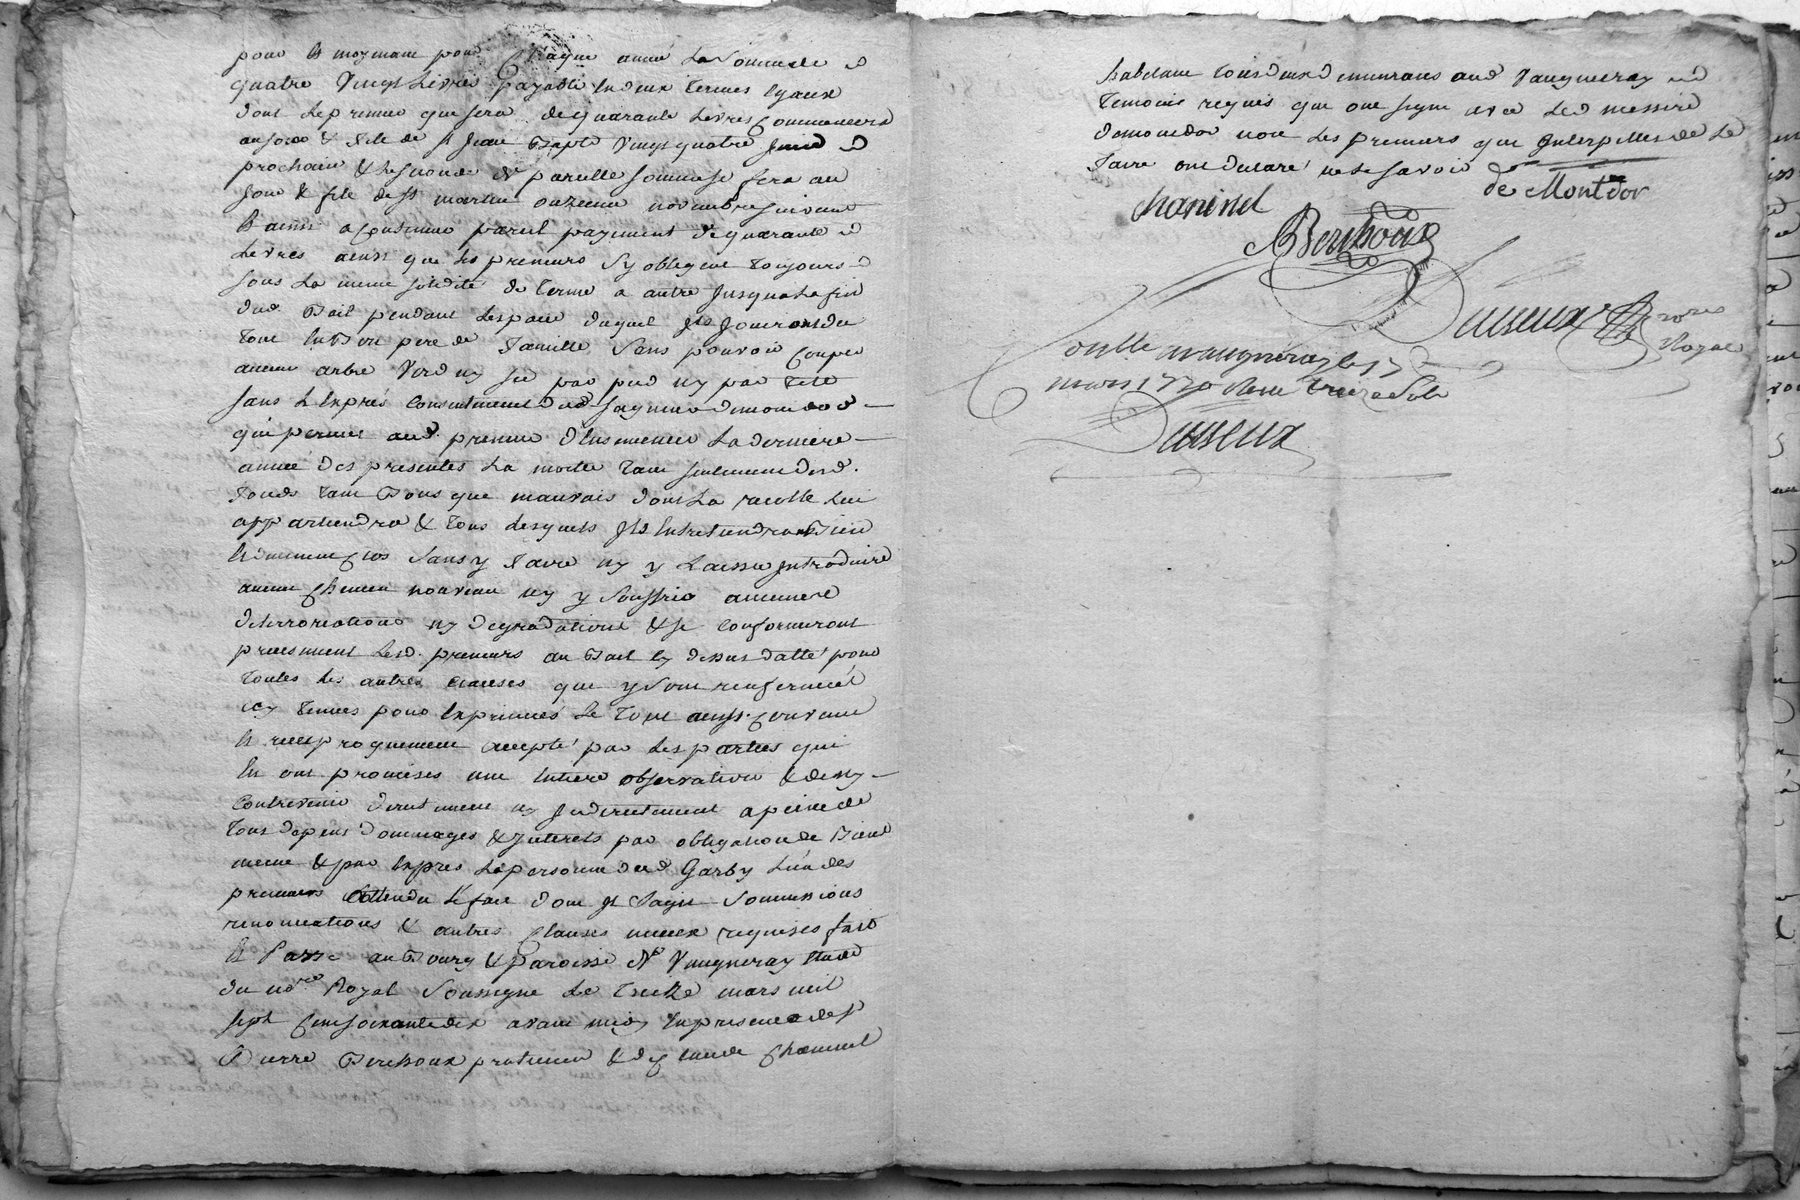 pour & moyenant pour chaque année La Somme de
quatre Vingt Livres payable En deux termes Egaux
dont Le premier qui sera de quarante Livres Commencera
au jour & fete de st Jean Bapte Vingt quatre Juin
prochain & Le second de pareille somme se fera au
jour & fete de st martin onzieme novembre suivant
& ainsi a Continuer pareil payement de quarante
Livres ainsi que Les preneurs s'y obligent toujours
sous La même solidité de terme a autre Jusqua La fin
dud. Bail pendant Lespace duquel Ils Jouiront du
tout En Bon pere de famille sans pouvoir Couper
aucun arbre Verd ny sec par pied ny par tete
sans L'Exprés Consentement dud seigneur de mondor
qui permet aud. preneur d'Ensemencer La derniere
année des presentes La moitié tant seulement desd.
fonds tant Bons que mauvais dont La recolte Lui
appartiendra & tous Lesquels Ils Entretiendront Bien
& duement Clos sans y faire ny y Laisser Introduire
aucun Chemin nouveau ny y souffrir aucune
deteriorations ny degradations & se Conformeront
precisement Lesd. preneurs au Bail Cy dessus datté pour
toutes Les autres Clauses qui y sont renfermées
icy tenues pour Exprimées Le tout ainsi Convenu
& reciproquement accepté par Les parties qui
En ont promises une Entiere observation & de n'y
Contrevenir directement ny Indirectement a peine de
tous depens dommages & Interets par obligation de Biens
meme & par Exprés La personne dud Garby L'un des
preneurs attendu Le fait dont Il s'agit soumissions
renonciations & autres Clauses requises fait
& Passé au Bourg & Paroisse de Vaugneray Etude
du nore Royal soussigné Le treize mars mil
sept Cent soixante dix avant midy En presence de sr
Pierre Berthoux praticien & de Claude Chaninel
habitant tous deux demeurans aud Vaugneray
temoins requis qui ont signé avec Led messire
demondor non Les preneurs qui Interpellés de Le
faire ont declaré ne Le savoir
de Montdor
Chaninel
Berthoux
Duseux nore
Royal
Conllé a vaugneray le 17
mars 1770 Reçu treize Sols
Duseux